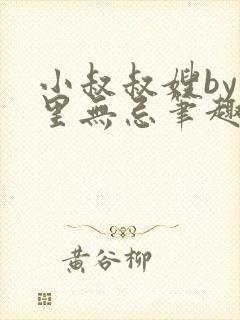 小叔叔嫂by
里無忌筆趣
黄谷柳